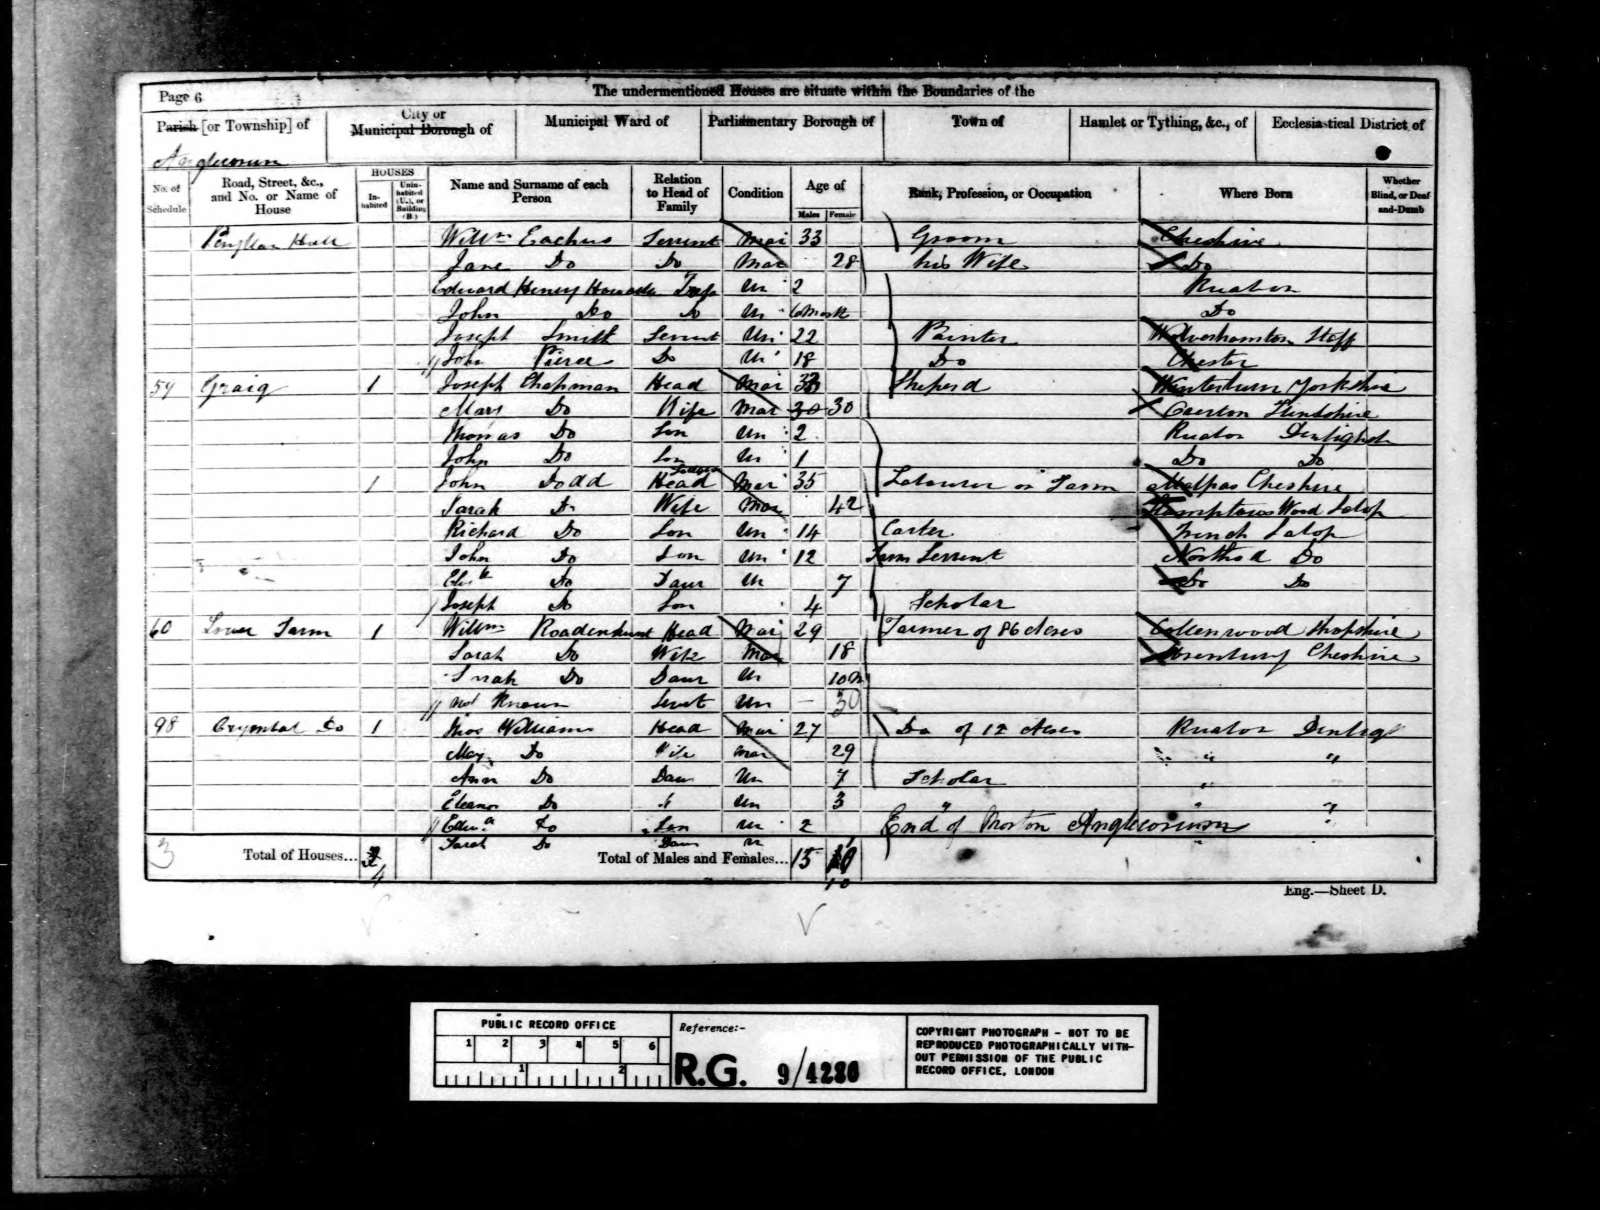 Page 6
The undermentioned Houses are situate within the Boundaries of the
Parish [or Township] of
City or Municipal Borough of
Municipal Ward of
Parliamentary Borough of
Town of
Hamlet or Tything, &c., of
Ecclesiastical District of
Anglicorum
No. of Schedule
Road, Street, &c., and No. or Name of House
HOUSES
Inhabited
Uninhabited (U.), or Building (B.)
Name and Surname of each Person
Relation to Head of Family
Condition
Age of
Males
Females
Rank, Profession, or Occupation
Where Born
Whether Blind, or Deaf-and-Dumb
Hall Willm Eachus Servent Mar 33 Groom Cheshire
Jane Do Do Mar 28 his Wife Do
Edward Henry Un 2 Ruabon
John Do Do Un 6 Do
Joseph Smith Servent Un 22 Painter Wolverhamton Staff
John Pierce Do Un 18 Do Chester
59 Graig 1 Joseph Chapman Head Mar 33 Sheperd Yorkshire
Mary Do Wife Mar 30 30 Flintshire
Thomas Do Son Un 2 Ruabon
John Do Son Un 1 Do Do
1 John Dodd Head Mar 35 Labourer on Farm Malpas Cheshire
Sarah Do Wife Mar 42 Wood Salop
Richard Do Son Un 14 Carter Salop
John Do Son Un 12 Farm Servent Do
Elizth Do Daur Un 7 Do Do
Joseph Do Son 4 Scholar
60 Lower Farm 1 Willm Head Mar 29 Farmer of 86 Acres Shropshire
Sarah Do Wife Mar 18 Cheshire
Sarah Do Daur Un 10 M
not Known Servt Un – 30
98 Do 1 Williams Head Mar 27 Do of 12 Acres Ruabon
Mary Do Wife Mar 29 " "
Ann Do Daur Un 7 Scholar "
Eleanor Do " Un 3 " " "
Edwd Do Son Un 2 End of Morton Anglicorum "
Sarah Do Daur Un "
3
Total of Houses... 4
Total of Males and Females... 15 10
Eng.—Sheet D.
PUBLIC RECORD OFFICE
1 2 3 4 5 6
1 2
Reference:-
R.G. 9/4286
COPYRIGHT PHOTOGRAPH - NOT TO BE
REPRODUCED PHOTOGRAPHICALLY WITH-
OUT PERMISSION OF THE PUBLIC
RECORD OFFICE, LONDON